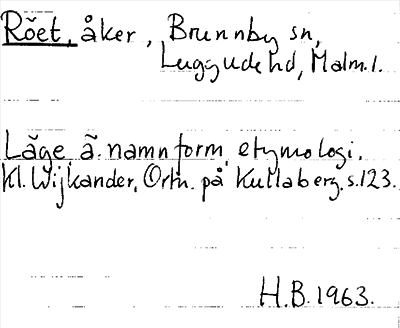 Röet, åker, Brunnby sn,
Luggude hd, Malm.l.
Läge, ä. namnform, etymologi.
Kl. Wijkander, Ortn. på Kullaberg. s.123.
H.B. 1963.